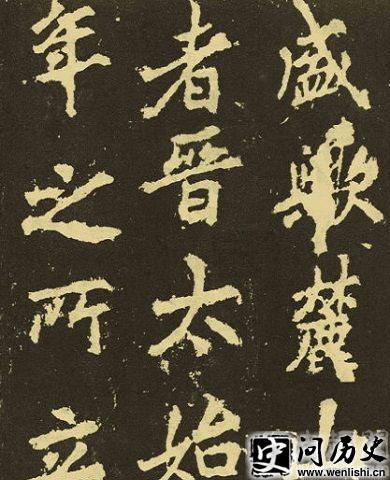 盛歟麓山
者晉太始
年之所立
史问历史
www.wenlishi.cn